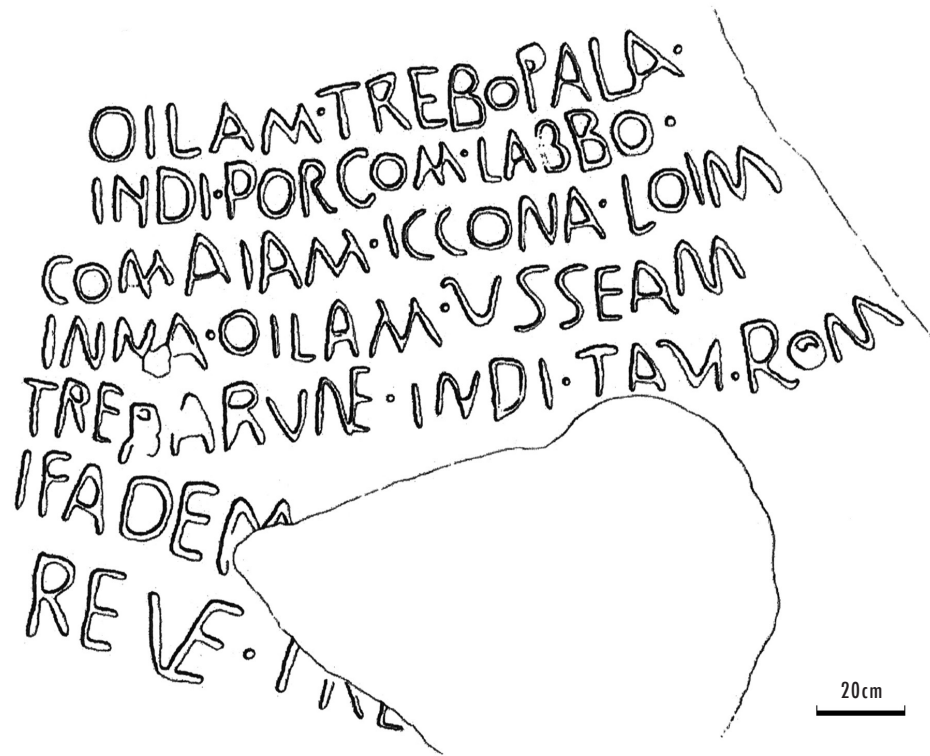 OILAM·TREBOPALA·
INDI·PORCOM·LABBO·
COMAIAM·ICCONA·LOIM
INNA·OILAM·VSSEAM
TREBARVNE·INDI·TAV.ROM
IFADEM
REVE·TRE
20cm